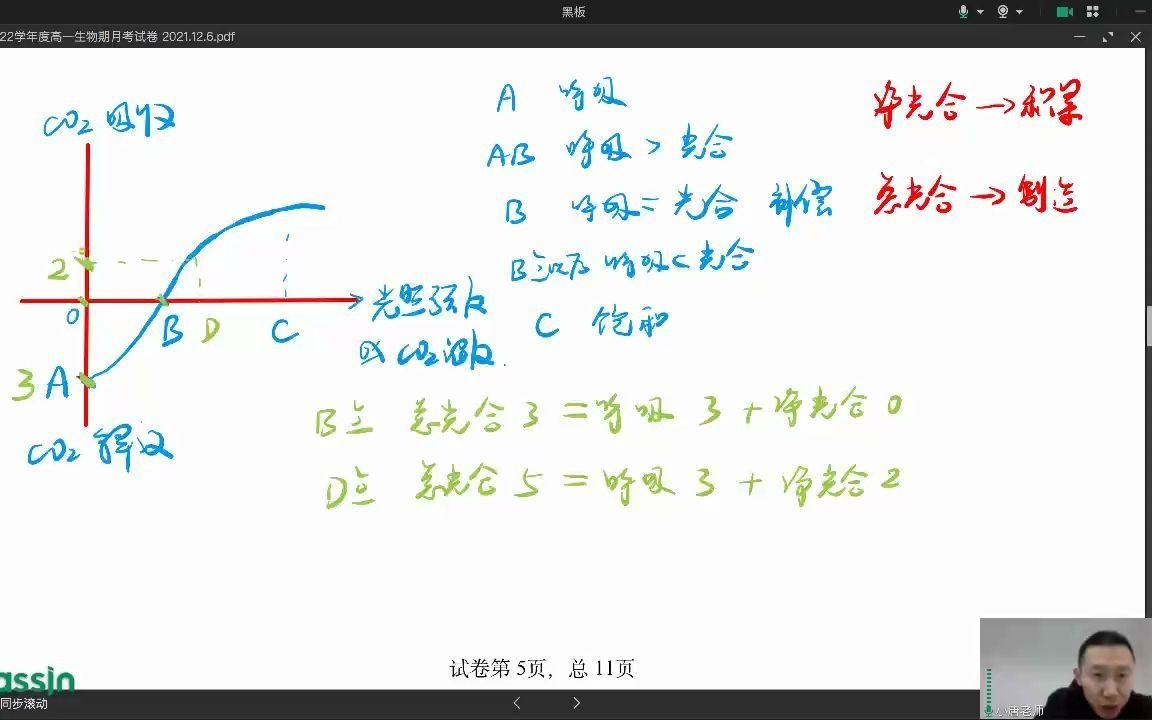 黑板
22学年度高一生物期月考试卷 2021.12.6.pdf
CO2 吸收
2
0
B D C
光照强度
或 CO2浓度
3 A
CO2 释放
A 呼吸
AB 呼吸 > 光合
B 呼吸 = 光合 补偿
B点以后 呼吸 < 光合
C 饱和
净光合 → 积累
总光合 → 制造
B点 总光合 3 = 呼吸 3 + 净光合 0
D点 总光合 5 = 呼吸 3 + 净光合 2
试卷第 5页，总 11页
assin
同步滚动
小唐老师